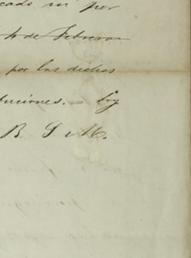 cado su por
4 de Febrero
por los dichos
tuciones. — Coy
B S M.